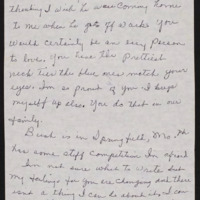 thinking I wish he was coming home
to me when he gets off work. You
would certainly be an easy person
to love. You have the prettiest
neck ties the blue ones match your
eyes. Im so proud of you I hugg
myself up close. You do that in our
family.
Bush is in Springfield, Mo, He
has some stiff competition Im afraid
Im not sure what to write but
my feelings for you are changing and there
isnt a thing I can do about it. I can